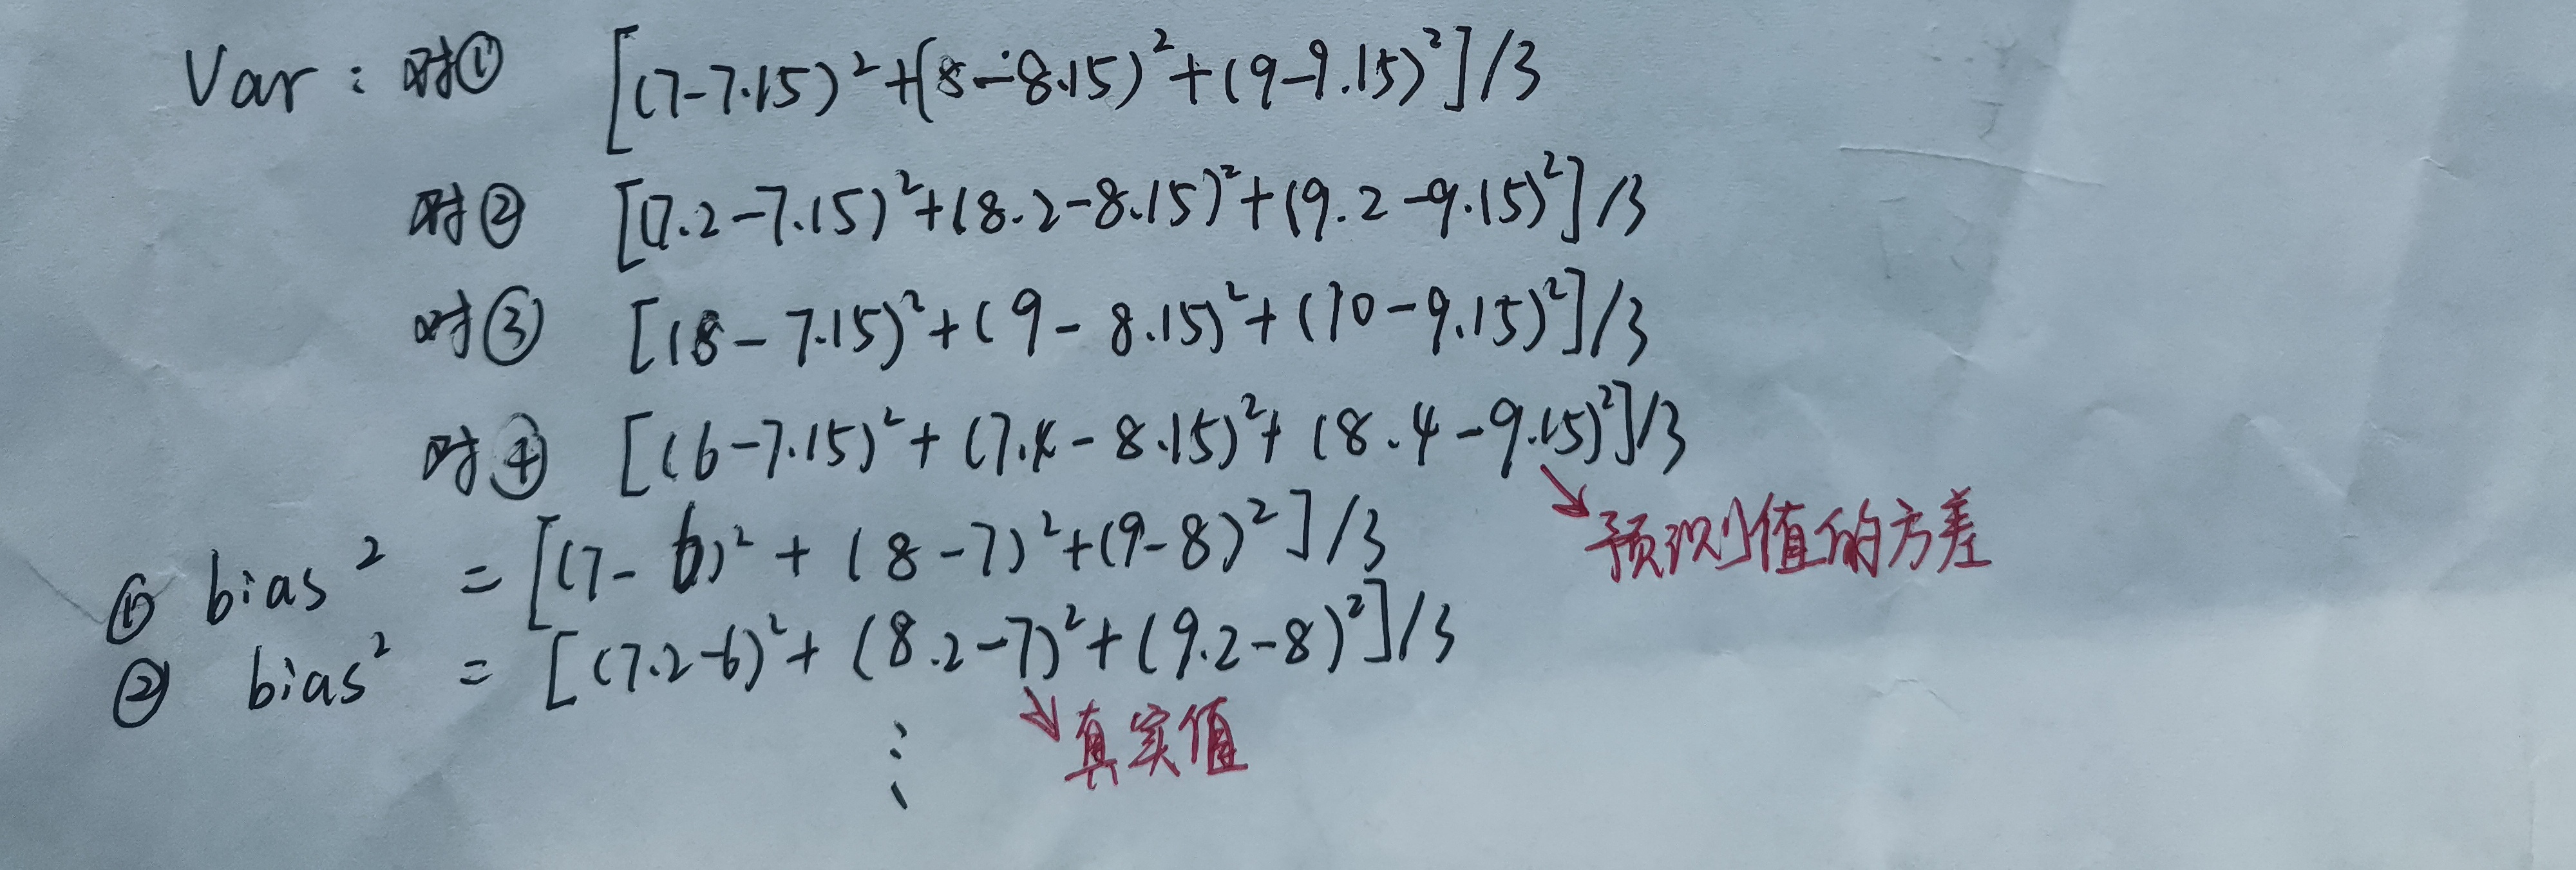 Var: 对① [(7-7.15)²+(8-8.15)²+(9-9.15)²]/3
对② [(7.2-7.15)²+(8.2-8.15)²+(9.2-9.15)²]/3
对③ [(8-7.15)²+(9-8.15)²+(10-9.15)²]/3
对④ [(6-7.15)²+(7.4-8.15)²+(8.4-9.15)²]/3
预测值的方差
① bias² = [(7-6)²+(8-7)²+(9-8)²]/3
② bias² = [(7.2-6)²+(8.2-7)²+(9.2-8)²]/3
真实值
⋮